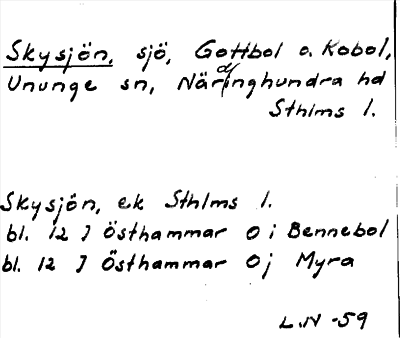 Skysjön, sjö, Gottbol o. Kobol,
Ununge sn, Närdinghundra hd
Sthlms l.
Skysjön, ek Sthlms l.
bl. 12 J Östhammar O i Bennebol
bl. 12 J Östhammar O j Myra
L.N -59